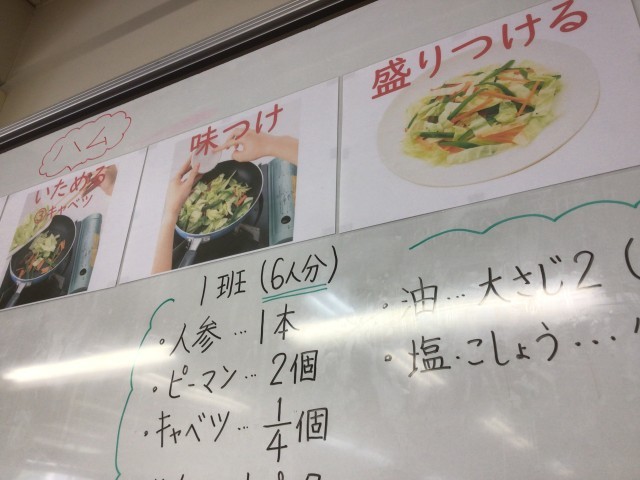 ハム
いためる
③キャベツ
味つけ
盛りつける
1班(6人分)
・人参…1本
・ピーマン…2個
・キャベツ…1/4個
・油…大さじ2(
・塩・こしょう…